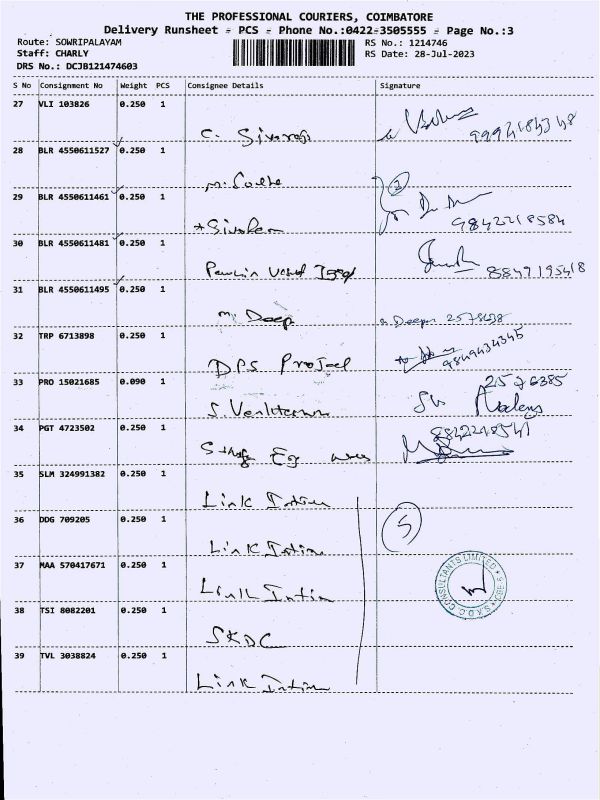 THE PROFESSIONAL COURIERS, COIMBATORE
Delivery Runsheet - PCS - Phone No.:0422-3505555 - Page No.:3
Route: SOWRIPALAYAM RS No.: 1214746
Staff: CHARLY RS Date: 28-Jul-2023
DRS No.: DCJB121474603
S No Consignment No Weight PCS Consignee Details Signature
27 VLI 103826 0.250 1
C. 9994184348
28 BLR 4550611527 0.250 1
M. 2
29 BLR 4550611461 0.250 1
9842218584
30 BLR 4550611481 0.250 1
8849195418
31 BLR 4550611495 0.250 1
M. Deep Deepa 2578638
32 TRP 6713898 0.250 1
DPS Project 9849434345
33 PRO 15021685 0.090 1 2576385
S.
34 PGT 4723502 0.250 1 9842218541
35 SLM 324991382 0.250 1
Link Intime
36 DDG 709205 0.250 1 5
Link Intime
37 MAA 570417671 0.250 1
Link Intime
S.K.D.C. CONSULTANTS LIMITED
38 TSI 8082201 0.250 1
SKDC
39 TVL 3038824 0.250 1
Link Intime